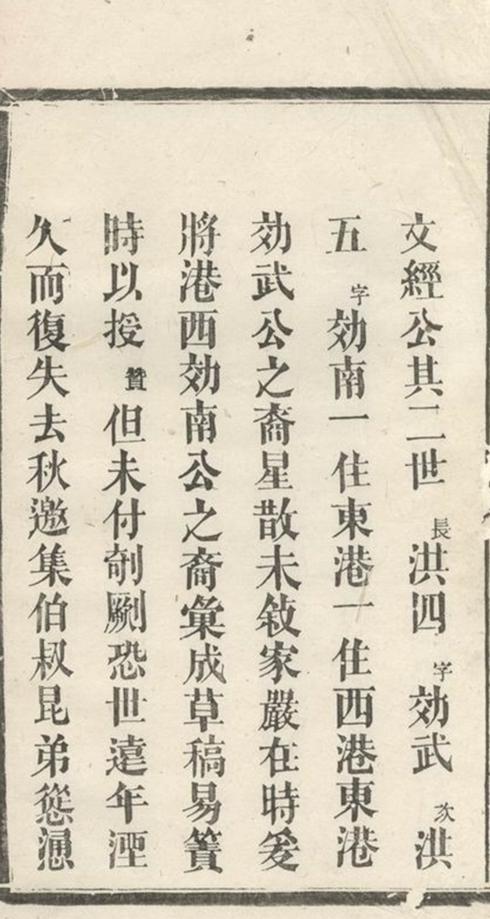 文經公其二世長洪四字効武次洪
五字効南一住東港一住西港東港
効武公之裔星散未敍家嚴在時爰
將港西効南公之裔彙成草稿易簀
時以授贊但未付剞劂恐世遠年湮
久而復失去秋邀集伯叔昆弟慫慂